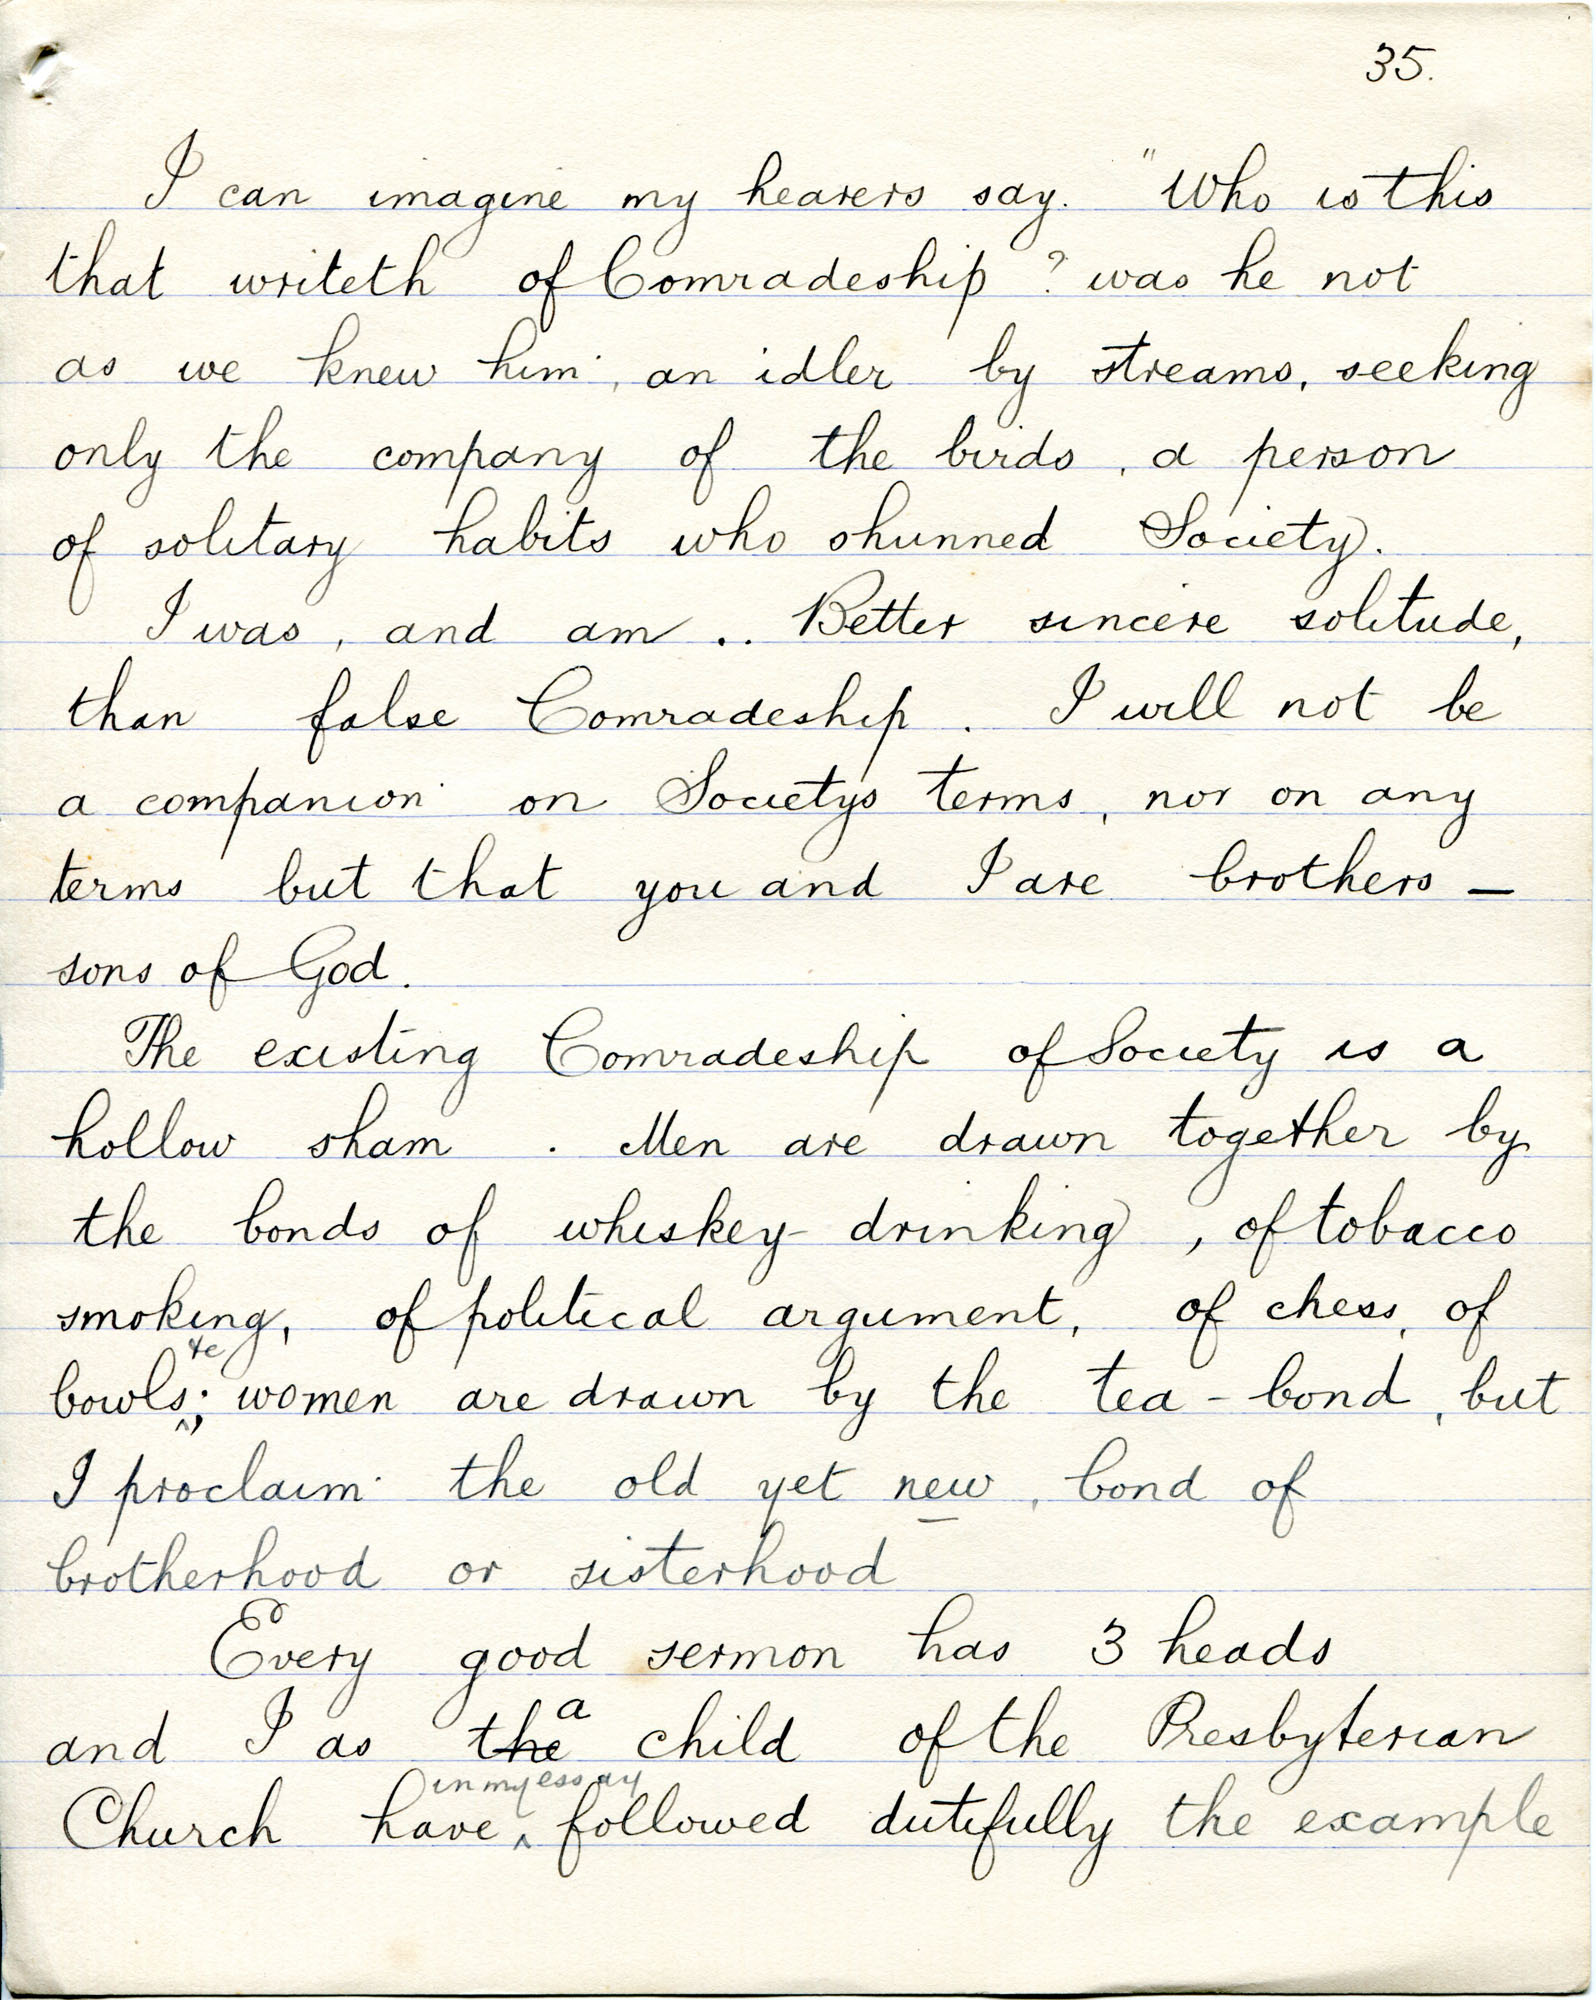 35.
I can imagine my hearers say. "Who is this
that writeth of Comradeship? was he not
as we knew him, an idler by streams, seeking
only the company of the birds, a person
of solitary habits who shunned Society.
I was, and am .. Better sincere solitude,
than false Comradeship. I will not be
a companion on Societys terms, nor on any
terms but that you and I are brothers —
sons of God.
The existing Comradeship of Society is a
hollow sham. Men are drawn together by
the bonds of whiskey-drinking, of tobacco
smoking, of political argument, of chess, of
bowls &c; women are drawn by the tea-bond, but
I proclaim the old yet new, bond of
brotherhood or sisterhood
Every good sermon has 3 heads
and I as the a child of the Presbyterian
Church have in my essay followed dutifully the example